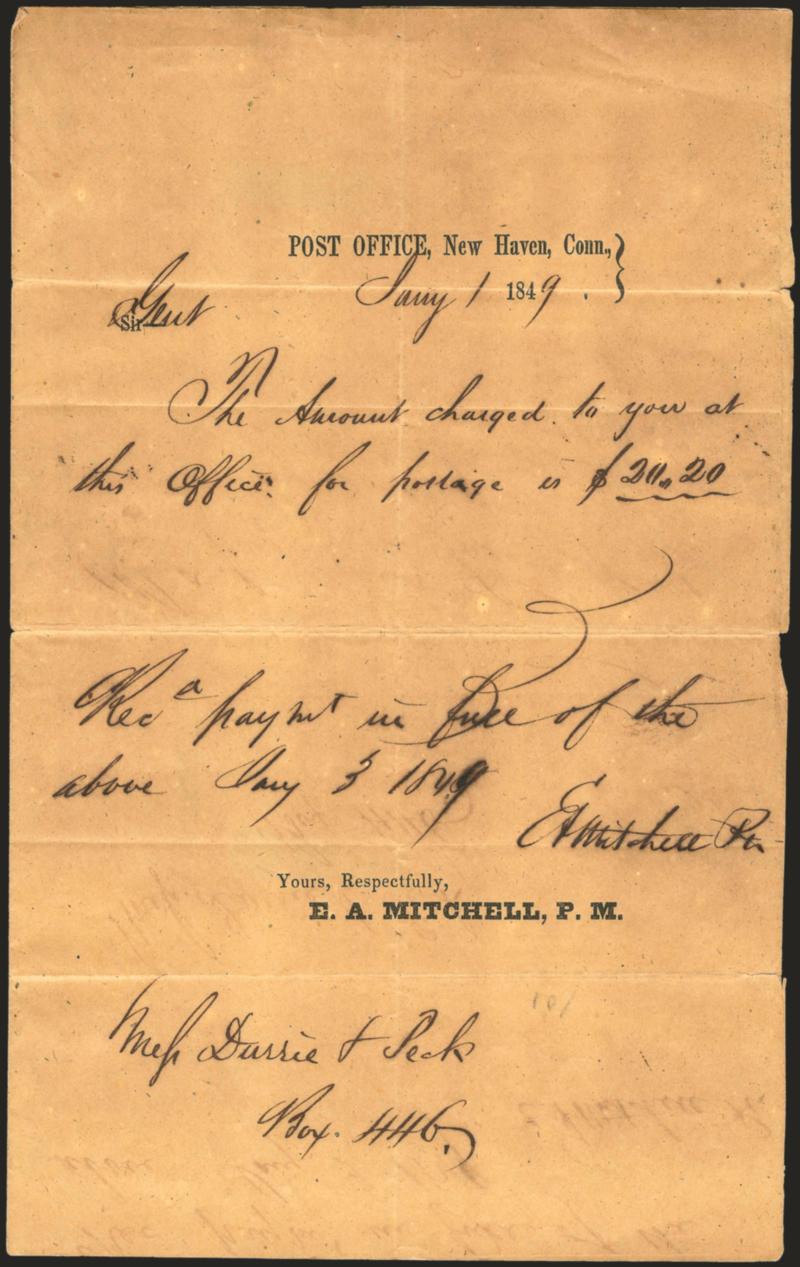 POST OFFICE, New Haven, Conn.,
Jany 1 1849.
Sir Gent
The Amount charged to you at
this Office for postage is $20.20
Recd paymt in full of the
above Jany 3 1849
EA Mitchell Pm
Yours, Respectfully,
E. A. MITCHELL, P. M.
Mess Durrie & Peck
Box. 446.